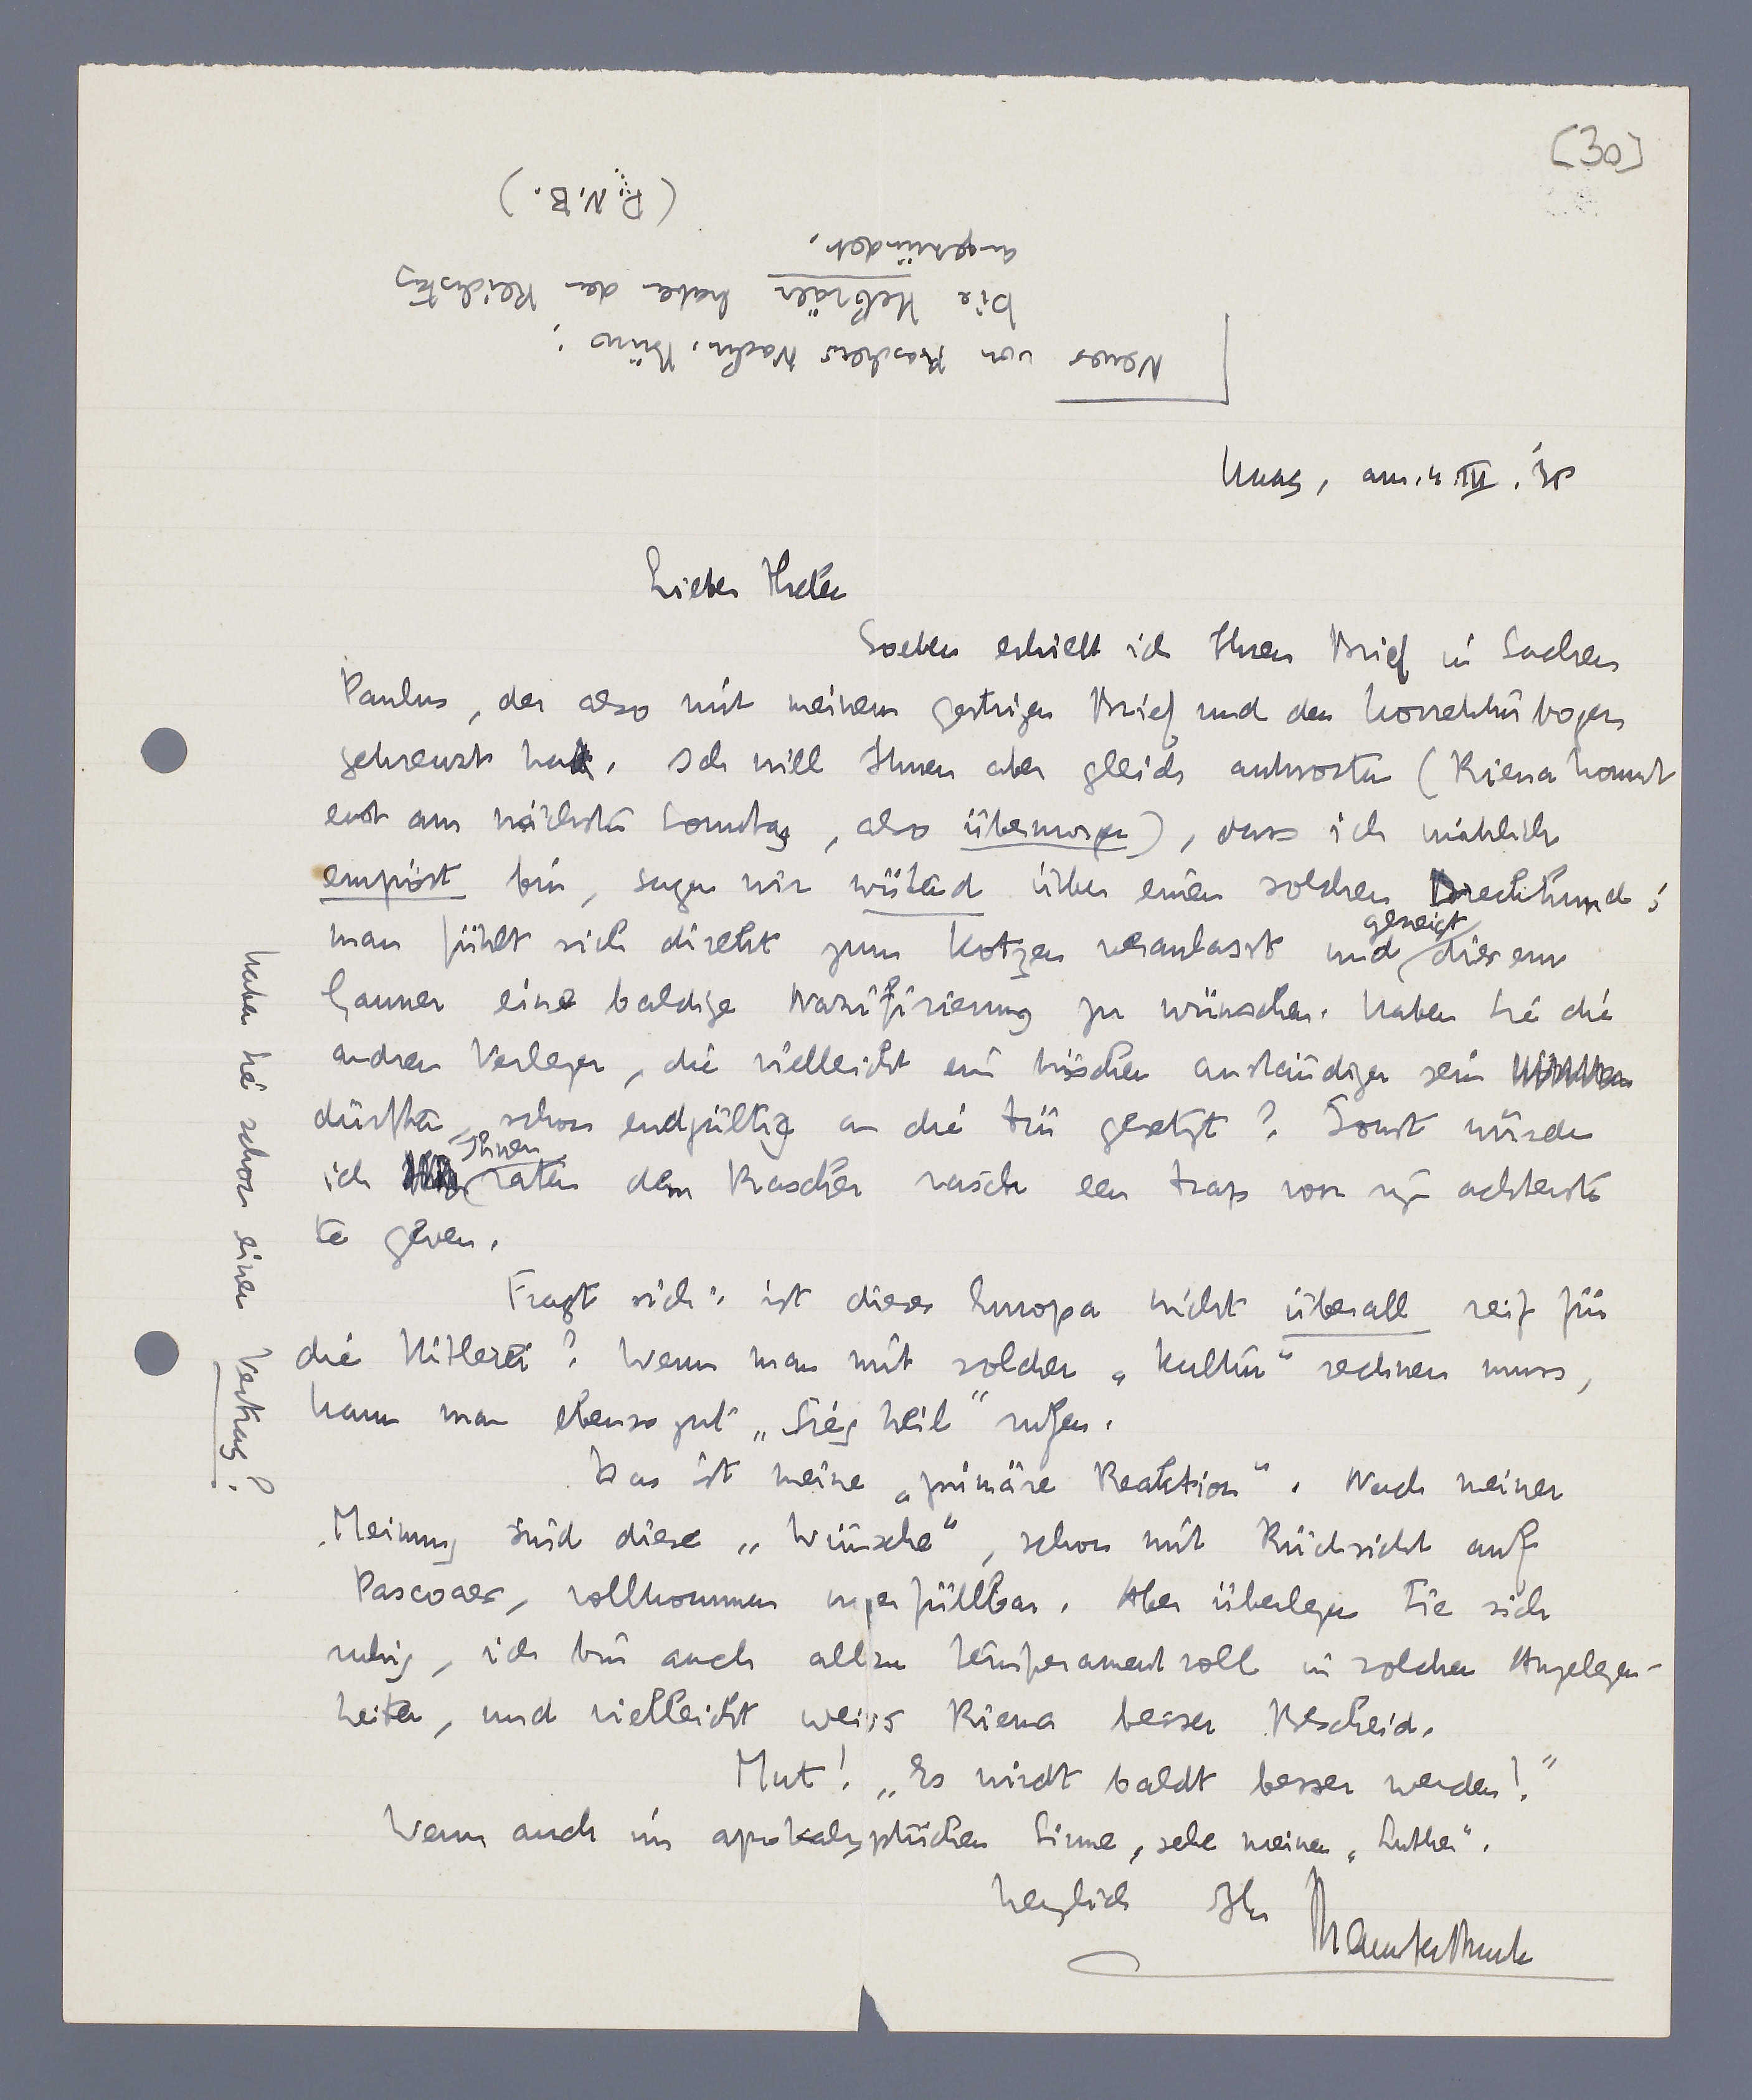 [30]
Neues von Raschers Nachr. Büro:
Die Hebräer haben den Reichstag
angezündet.
(R.N.B.)
Haag, am 4 III. 38
Lieber Thelen
Soeben erhielt ich Ihren Brief in Sachen
Paulus, der also mit meinem gestrigen Brief und den Korrekturbogen
gekreuzt hat. Ich will Ihnen aber gleich antworten (Riena kommt
erst am nächsten Sonntag, also übermorgen), dass ich wirklich
empört bin, sagen wir wütend über einen solchen Dreckhund;
man fühlt sich direkt zum Kotzen veranlasst und geneigt diesem
Gauner eine baldige Nazifizierung zu wünschen. Haben Sie die
andren Verleger, die vielleicht ein bisschen anständiger sein
dürften, schon endgültig an die Tür gesetzt? Sonst würde
ich Ihnen raten dem Rascher rasch een trap voor zijn achterste
te geven.
Fragt sich: ist dieses Europa nicht überall reif für
die Hitlerei? Wenn man mit solcher „Kultur" rechnen muss,
kann man ebenso gut „Sieg heil" rufen.
Das ist meine „primäre Reaktion". Nach meiner
Meinung sind diese „Wünsche", schon mit Rücksicht auf
Pascoaes, vollkommen unerfüllbar. Aber überlegen Sie sich
ruhig, ich bin auch allzu temperamentvoll in solchen Angelegen-
heiten, und vielleicht weiss Riena besser Bescheid.
Mut! „Es wirdt baldt besser werden!"
Wenn auch im apokalyptischen Sinne, sehe meinen „Luther".
Herzlich Ihr
Haben Sie schon einen Vertrag?